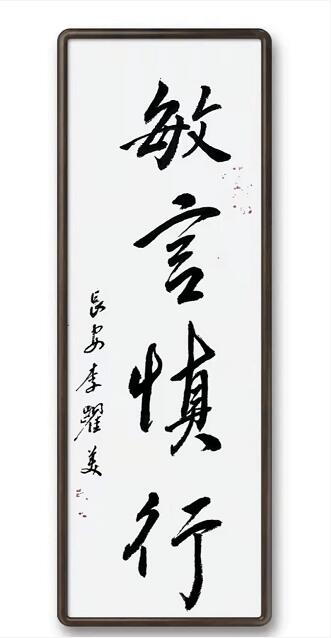 敏言慎行
长安李耀美